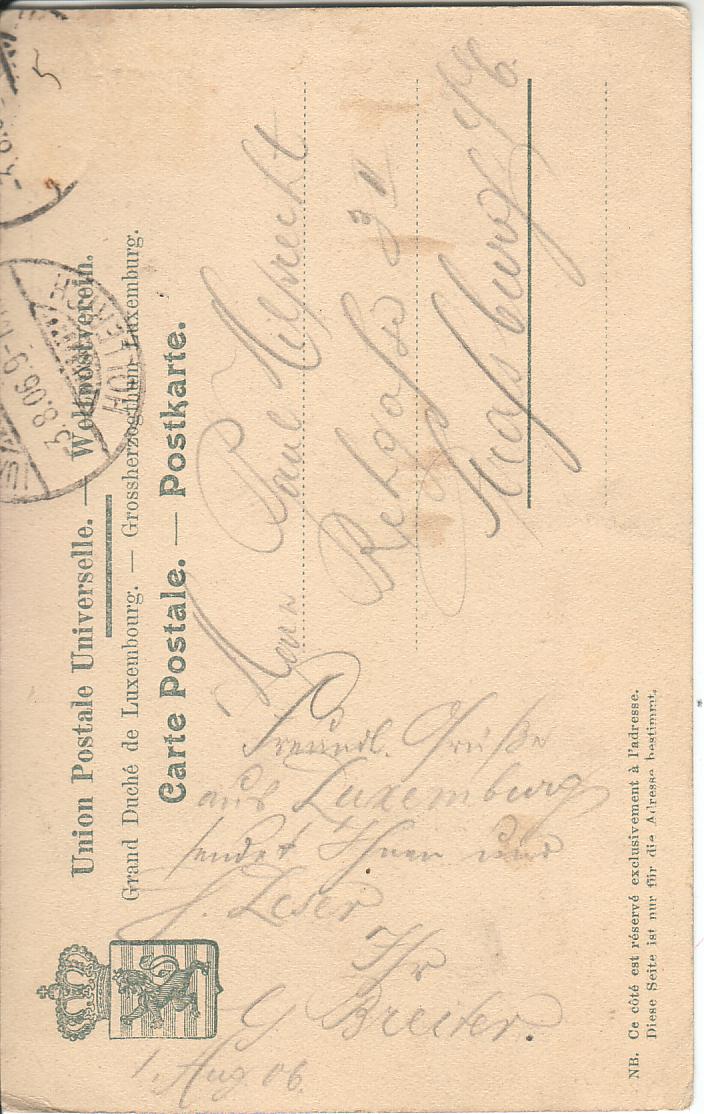 Union Postale Universelle. — Weltpostverein.
Grand Duché de Luxembourg. — Grossherzogthum Luxemburg.
Carte Postale. — Postkarte.
-3.8.06.9-
5
Herrn Paul Hilprecht
Straßburg i/E.
Freundl. Grüße
aus Luxemburg
sendet Ihnen und
Leser
Ihr
G Breiter.
1. Aug 06.
NB. Ce côté est réservé exclusivement à l'adresse.
Diese Seite ist nur für die Adresse bestimmt.